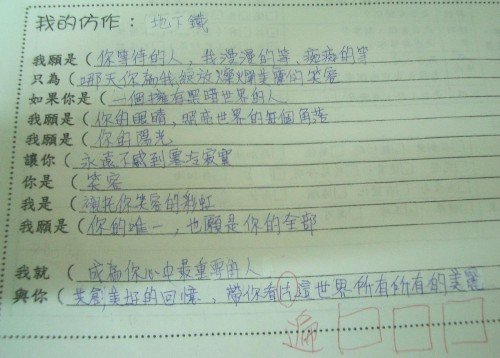 我的仿作：地下鐵
我願是（你等待的人，我漫漫的等，痴痴的等
只為（哪天你為我綻放燦爛美麗的笑容
如果你是（一個擁有黑暗世界的人
我願是（你的眼睛，照亮世界的每個角落
我願是（你的陽光
讓你（永遠不感到寂寞
你是（笑容
我是（襯托你笑容的彩虹
我願是（你的唯一，也願是你的全部
我就（成為你心中最重要的人
與你（共創美好的回憶，帶你看片這世界所有所有的美麗
遍